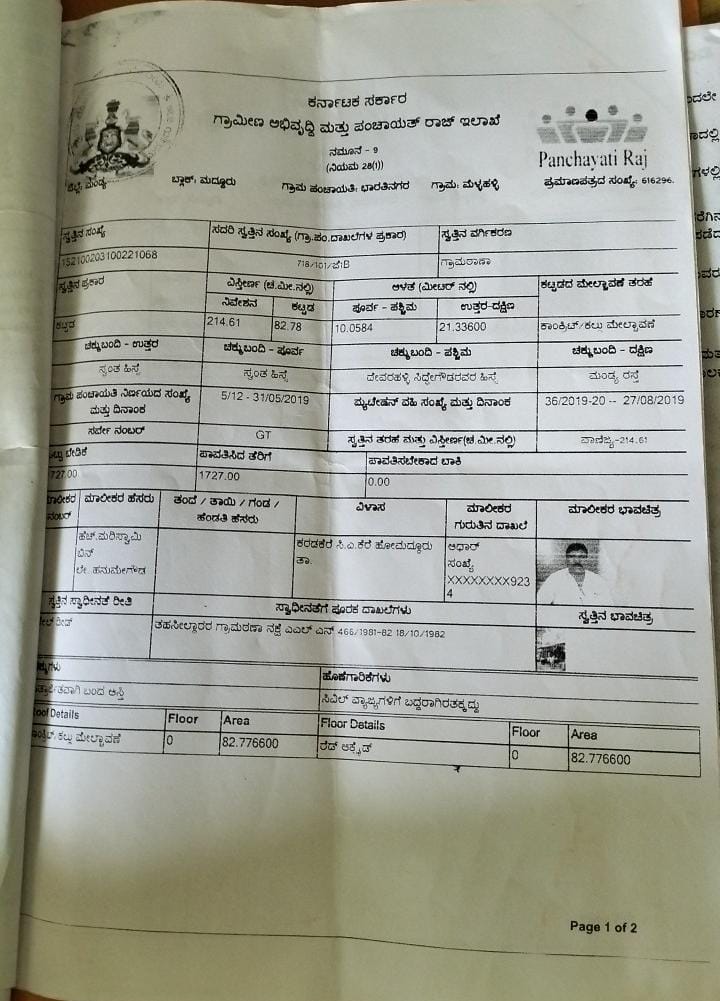 ಕರ್ನಾಟಕ ಸರ್ಕಾರ
ಗ್ರಾಮೀಣ ಅಭಿವೃದ್ಧಿ ಮತ್ತು ಪಂಚಾಯತ್ ರಾಜ್ ಇಲಾಖೆ
ನಮೂನೆ - 9
(ನಿಯಮ 28(1))
Panchayati Raj
ಜಿಲ್ಲೆ: ಮಂಡ್ಯ ಬ್ಲಾಕ್: ಮದ್ದೂರು ಗ್ರಾಮ ಪಂಚಾಯತಿ: ಭಾರತಿನಗರ ಗ್ರಾಮ: ಮೆಳ್ಳಹಳ್ಳಿ ಪ್ರಮಾಣಪತ್ರದ ಸಂಖ್ಯೆ: 616296.
ಸ್ವತ್ತಿನ ಸಂಖ್ಯೆ ಸದರಿ ಸ್ವತ್ತಿನ ಸಂಖ್ಯೆ (ಗ್ರಾ.ಪಂ.ದಾಖಲೆಗಳ ಪ್ರಕಾರ) ಸ್ವತ್ತಿನ ವರ್ಗೀಕರಣ
152100203100221068 718/101/ಜೆ1B ಗ್ರಾಮಠಾಣಾ
ಸ್ವತ್ತಿನ ಪ್ರಕಾರ ವಿಸ್ತೀರ್ಣ (ಚ.ಮೀ.ನಲ್ಲಿ) ಅಳತೆ (ಮೀಟರ್ ನಲ್ಲಿ) ಕಟ್ಟಡದ ಮೇಲ್ಛಾವಣೆ ತರಹೆ
ನಿವೇಶನ ಕಟ್ಟಡ ಪೂರ್ವ - ಪಶ್ಚಿಮ ಉತ್ತರ-ದಕ್ಷಿಣ
ಕಟ್ಟಡ 214.61 82.78 10.0584 21.33600 ಕಾಂಕ್ರಿಟ್/ಕಲ್ಲು ಮೇಲ್ಛಾವಣೆ
ಚಕ್ಕುಬಂದಿ - ಉತ್ತರ ಚಕ್ಕುಬಂದಿ - ಪೂರ್ವ ಚಕ್ಕುಬಂದಿ - ಪಶ್ಚಿಮ ಚಕ್ಕುಬಂದಿ - ದಕ್ಷಿಣ
ಸ್ವಂತ ಹಿಸ್ಸೆ ಸ್ವಂತ ಹಿಸ್ಸೆ ದೇವರಹಳ್ಳಿ ಸಿದ್ದೇಗೌಡರವರ ಹಿಸ್ಸೆ ಮಂಡ್ಯ ರಸ್ತೆ
ಗ್ರಾಮ ಪಂಚಾಯತಿ ನಿರ್ಣಯದ ಸಂಖ್ಯೆ
ಮತ್ತು ದಿನಾಂಕ 5/12 - 31/05/2019 ಮ್ಯುಟೇಷನ್ ವಹಿ ಸಂಖ್ಯೆ ಮತ್ತು ದಿನಾಂಕ 36/2019-20 -- 27/08/2019
ಸರ್ವೇ ನಂಬರ್ GT ಸ್ವತ್ತಿನ ತರಹೆ ಮತ್ತು ವಿಸ್ತೀರ್ಣ(ಚ.ಮೀ.ನಲ್ಲಿ) ವಾಣಿಜ್ಯ-214.61
ಬೇಡಿಕೆ ಪಾವತಿಸಿದ ತೆರಿಗೆ ಪಾವತಿಸಬೇಕಾದ ಬಾಕಿ
727.00 1727.00 0.00
ನಂಬರ್ ಮಾಲೀಕರ ಹೆಸರು ತಂದೆ / ತಾಯಿ / ಗಂಡ / ಹೆಂಡತಿ ಹೆಸರು ವಿಳಾಸ ಮಾಲೀಕರ ಗುರುತಿನ ದಾಖಲೆ ಮಾಲೀಕರ ಭಾವಚಿತ್ರ
ಹೆಚ್.ಮರಿಸ್ವಾಮಿ ಕರಡಕೆರೆ ಸಿ.ಎ.ಕೆರೆ ಹೋಮದ್ದೂರು ಆಧಾರ್
ಬಿನ್ ತಾ. ಸಂಖ್ಯೆ
ಲೇ..ಹನುಮೇಗೌಡ XXXXXXXX923
4
ಸ್ವತ್ತಿನ ಸ್ವಾಧೀನತೆ ರೀತಿ ಸ್ವಾಧೀನತೆಗೆ ಪೂರಕ ದಾಖಲೆಗಳು ಸ್ವತ್ತಿನ ಭಾವಚಿತ್ರ
ಡೀಡ್ ತಹಸೀಲ್ದಾರರ ಗ್ರಾಮಠಾಣಾ ನಕ್ಷೆ ಎಎಲ್ ಎನ್ 466/1981-82 18/10/1982
ಹೊಣೆಗಾರಿಕೆಗಳು
ಬಂದ ಆಸ್ತಿ ಸಿವಿಲ್ ವ್ಯಾಜ್ಯಗಳಿಗೆ ಬದ್ದರಾಗಿರತಕ್ಕದ್ದು
oof Details Floor Area Floor Details Floor Area
ಕಲ್ಲು ಮೇಲ್ಛಾವಣೆ 0 82.776600 ರೆಡ್ ಆಕ್ಸೈಡ್ 0 82.776600
Page 1 of 2